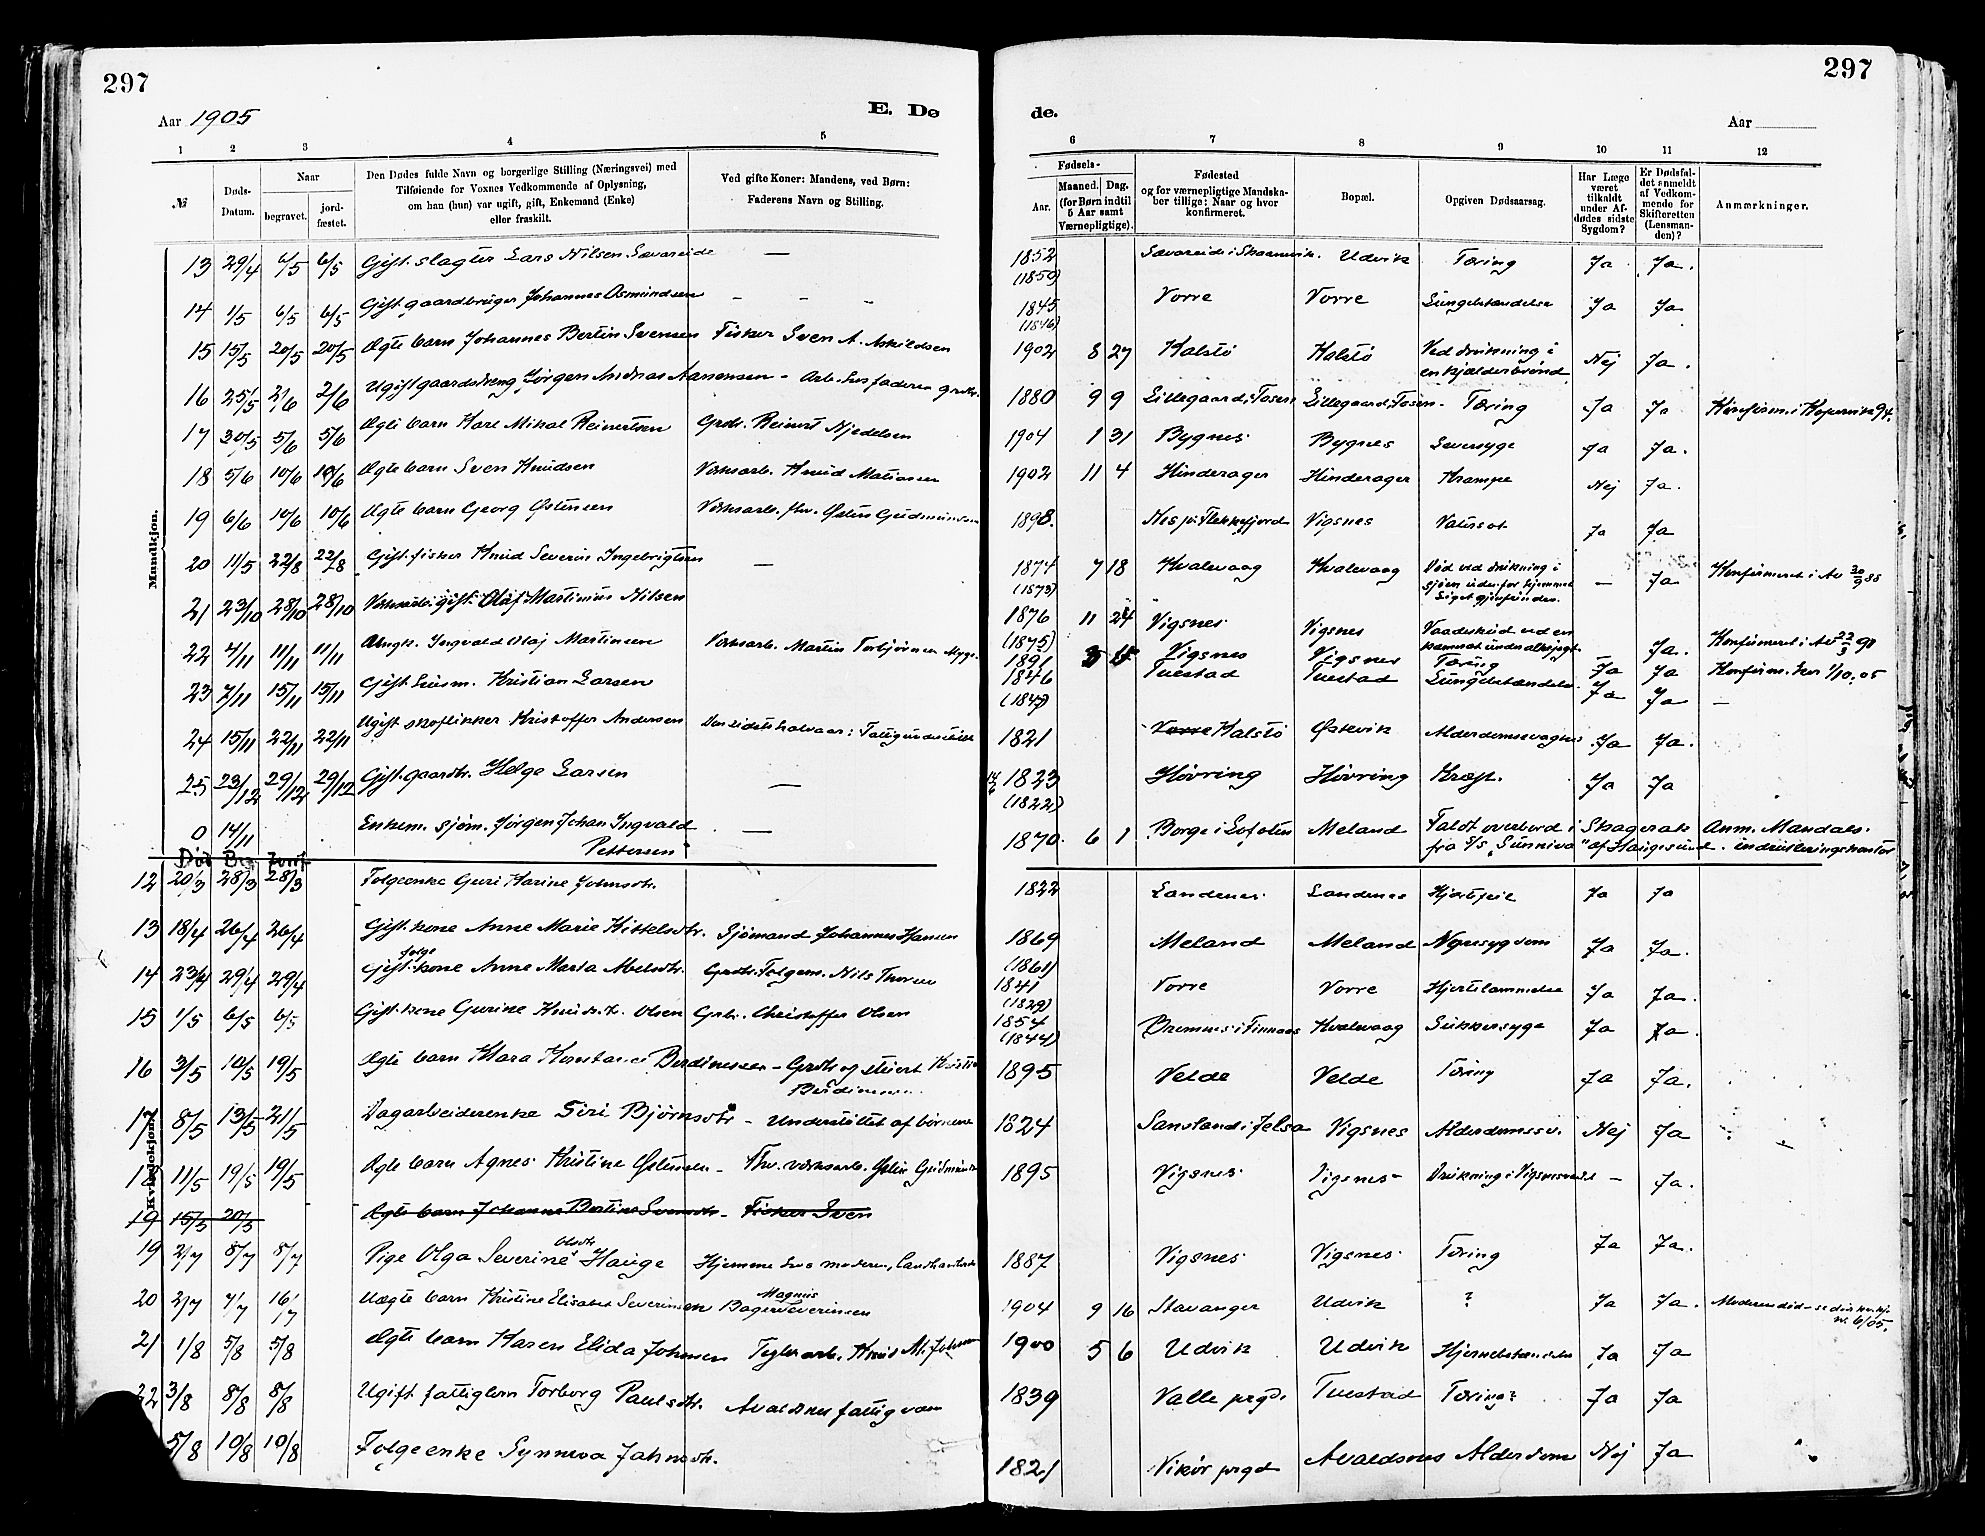 297
297
Aar 1905
E. Dø
de.
Aar
1 2 3 4 5 6 7 8 9 10 11 12
№
Døds-Datum.
Naar
begravet.
jord-fæstet.
Den Dødes fulde Navn og borgerlige Stilling (Næringsvei) med
Tilføiende for Voxnes Vedkommende af Oplysning,
om han (hun) var ugift, gift, Enkemand (Enke)
eller fraskilt.
Ved gifte Koner: Mandens, ved Børn:
Faderens Navn og Stilling.
Fødsels-
Aar.
Maaned. Dag.
(for Børn indtil
5 Aar samt
Værnepligtige).
Fødested
og for værnepligtige Mandska-
ber tillige: Naar og hvor
konfirmeret.
Bopæl.
Opgiven Dødsaarsag.
Har Læge
været
tilkaldt
under Af-
dødes sidste
Sygdom?
Er Dødsfal-
det anmeldt
af Vedkom-
mende for
Skifteretten
(Lensman-
den)?
Anmærkninger.
Mandkjøn.
13 29/4 6/5 6/5 Gift slagter Lars Nilsen Sævareide — 1852 (1850) Sævareide i Skaanevik. Udvik Tæring Ja Ja.
14 1/5 6/5 6/5 Gift gaardbruger Johannes Osmundsen - - - 1845 (1846) Vorre Vorre Lungebetændelse Ja Ja
15 15/5 20/5 20/5 Ægte barn Johannes Bertin Svensen Fisker Sven A. Askildsen 1902 8 27 Kalstø Kalstø Ved drukning i en kjælderbrønd Nej Ja.
16 25/5 2/6 2/6 Ugift gaardsdreng Jørgen Andreas Aanensen - Arb. hos faderen 1880 9 9 Lillegaard, Tosen Lillegaard, Tosen. Tæring Ja Ja Konfirm. i Kopervik 94.
17 30/5 5/6 5/6 Ægte barn Karl Mikal Reinertsen Grdbr. Reinert Njedelsen 1904 1 31 Bygnes Bygnes Leversyge Ja Ja.
18 5/6 10/6 10/6 Ægte barn Sven Knudsen Verksarb. Knud Matiassen 1902 11 4 Hinderager Hinderager Krampe Nej Ja.
19 6/6 10/6 10/6 Ægte barn Georg Østensen Verksarb. fhv. Østen Gudmundsen 1898. Nes pr. Flekkefjord Vigsnes Vatersot Ja Ja
20 11/5 22/8 22/8 Gift fisker Knud Severin Ingebrigtsen — 1874 (1873) 7 18 Kvalevaag Kvalevaag Død ved drukning i sjøen udenfor hjemmet Liget gjenfundet. — Ja Konfirmeret i Av 30/9 88
21 23/10 28/10 28/10 Verksarb. gift Olaf Martinius Nilsen 1876 (1875) 11 24 Vigsnes Vigsnes Vaadeskud ved en kamerat under alkejagt Ja. Konfirmeret i Av 22/3 91
22 4/11 11/11 11/11 Ungk. Ingvald Olaj Martinsen Verksarb. Martin Torbjørnsen Myge. 1891 Vigsnes Vigsnes Tæring Ja Ja Konfirm. her 1/10 05
23 7/11 15/11 15/11 Gift Husm. Kristian Larsen 1846 (1847) Tuestad Tuestad Lungebetændelse. Ja Ja —
24 15/11 22/11 22/11 Ugift skoflikker Kristoffer Andersen Den sidste halvaar: Fattigunderstøtt. 1821 Vorre Kalstø Østevik Alderdomssvaghed Ja Ja.
25 23/12 29/12 29/12 Gift gaardbr. Helge Larsen — 1823 (1822) Høvring Høvring Kræft. Ja Ja
0 14/11 Enkem. sjøm. Jørgen Johan Ingvald Pettersen — 1870. 6 1 Borge i Lofoten Meland Faldt overbord i Skagerak fra S/S "Sunniva" af Haugesund. Anm. Mandals. indrulleringskontor
Død Beg. Jordf.
Kvindekjøn.
12 20/3 28/3 28/3 Folgeenke Guri Karine Johnsdtr. 1822 Landenes Landenes Hjertefeil Ja Ja
13 18/4 26/4 26/4 Gift kone Anne Marie Kittelsdtr. Sjømand Johannes Hansen 1869 (1861) Meland Meland Nyresygdom Ja Ja.
14 23/4 29/4 29/4 Gift folge kone Anne Marta Abelsdtr. Grdbr. Folgem. Nils Thorsen 1841 (1829) Vorre Vorre Hjertelammelse Ja Ja.
15 1/5 6/5 6/5 Gift kone Gurine Knudsdtr. Olsen Grbr. Christoffer Olsen 1854 (1844) Bremnes i Finnaas Kvalevaag Sukkersyge Ja Ja.
16 3/5 10/5 19/5 Ægte barn Klara Konstance Berdinessen - Grdbr. og stuert Kristian Berdinessen 1895 Velde Velde Tæring Ja Ja.
17 8/5 13/5 21/5 Dagarbeiderenke Siri Bjørnsdtr - Understøttet af børnene 1824 Sandsland i Jelsa Vigsnes Alderdomssv. Nej Ja
18 11/5 19/5 19/5 Ægte barn Agnes Kristine Østensen - Fhv. verksarb. Østen Gudmundsen 1895 Vigsnes Vigsnes Drukning i Vigsnesvandet — Ja.
19 15/5 20/5 Ægte barn Johanne Bertine Svensdtr. - Fisker Sven
19 2/7 8/7 8/7 Pige Olga Severine Olsdtr Hauge Hjemme hos moderen, 1887 Vigsnes Vigsnes Tæring Ja Ja.
20 2/7 7/7 16/7 Uægte barn Kristine Elisabet Severinsen Bager Magnus Severinsen 1904 9 16 Stavanger Udvik ? Ja Ja. Moderen død - se døde kv.kj. nr. 6/05.
21 1/8 5/8 5/8 Ægte barn Karen Elida Johnsen Teglv.arb. Knud M. Johnsen 1900 5 6 Udvik Udvik Hjernebetændelse Ja Ja
22 3/8 8/8 8/8 Ugift fattiglem Torborg Paulsdtr. Avaldsnes fattigvæs 1839 Valle prgd. Tuestad Tæring? Ja Ja
5/8 10/8 10/8 Folgeenke Synneva Jahnsdtr. 1821 Vikør prgd Avaldsnes Alderdom Nej Ja